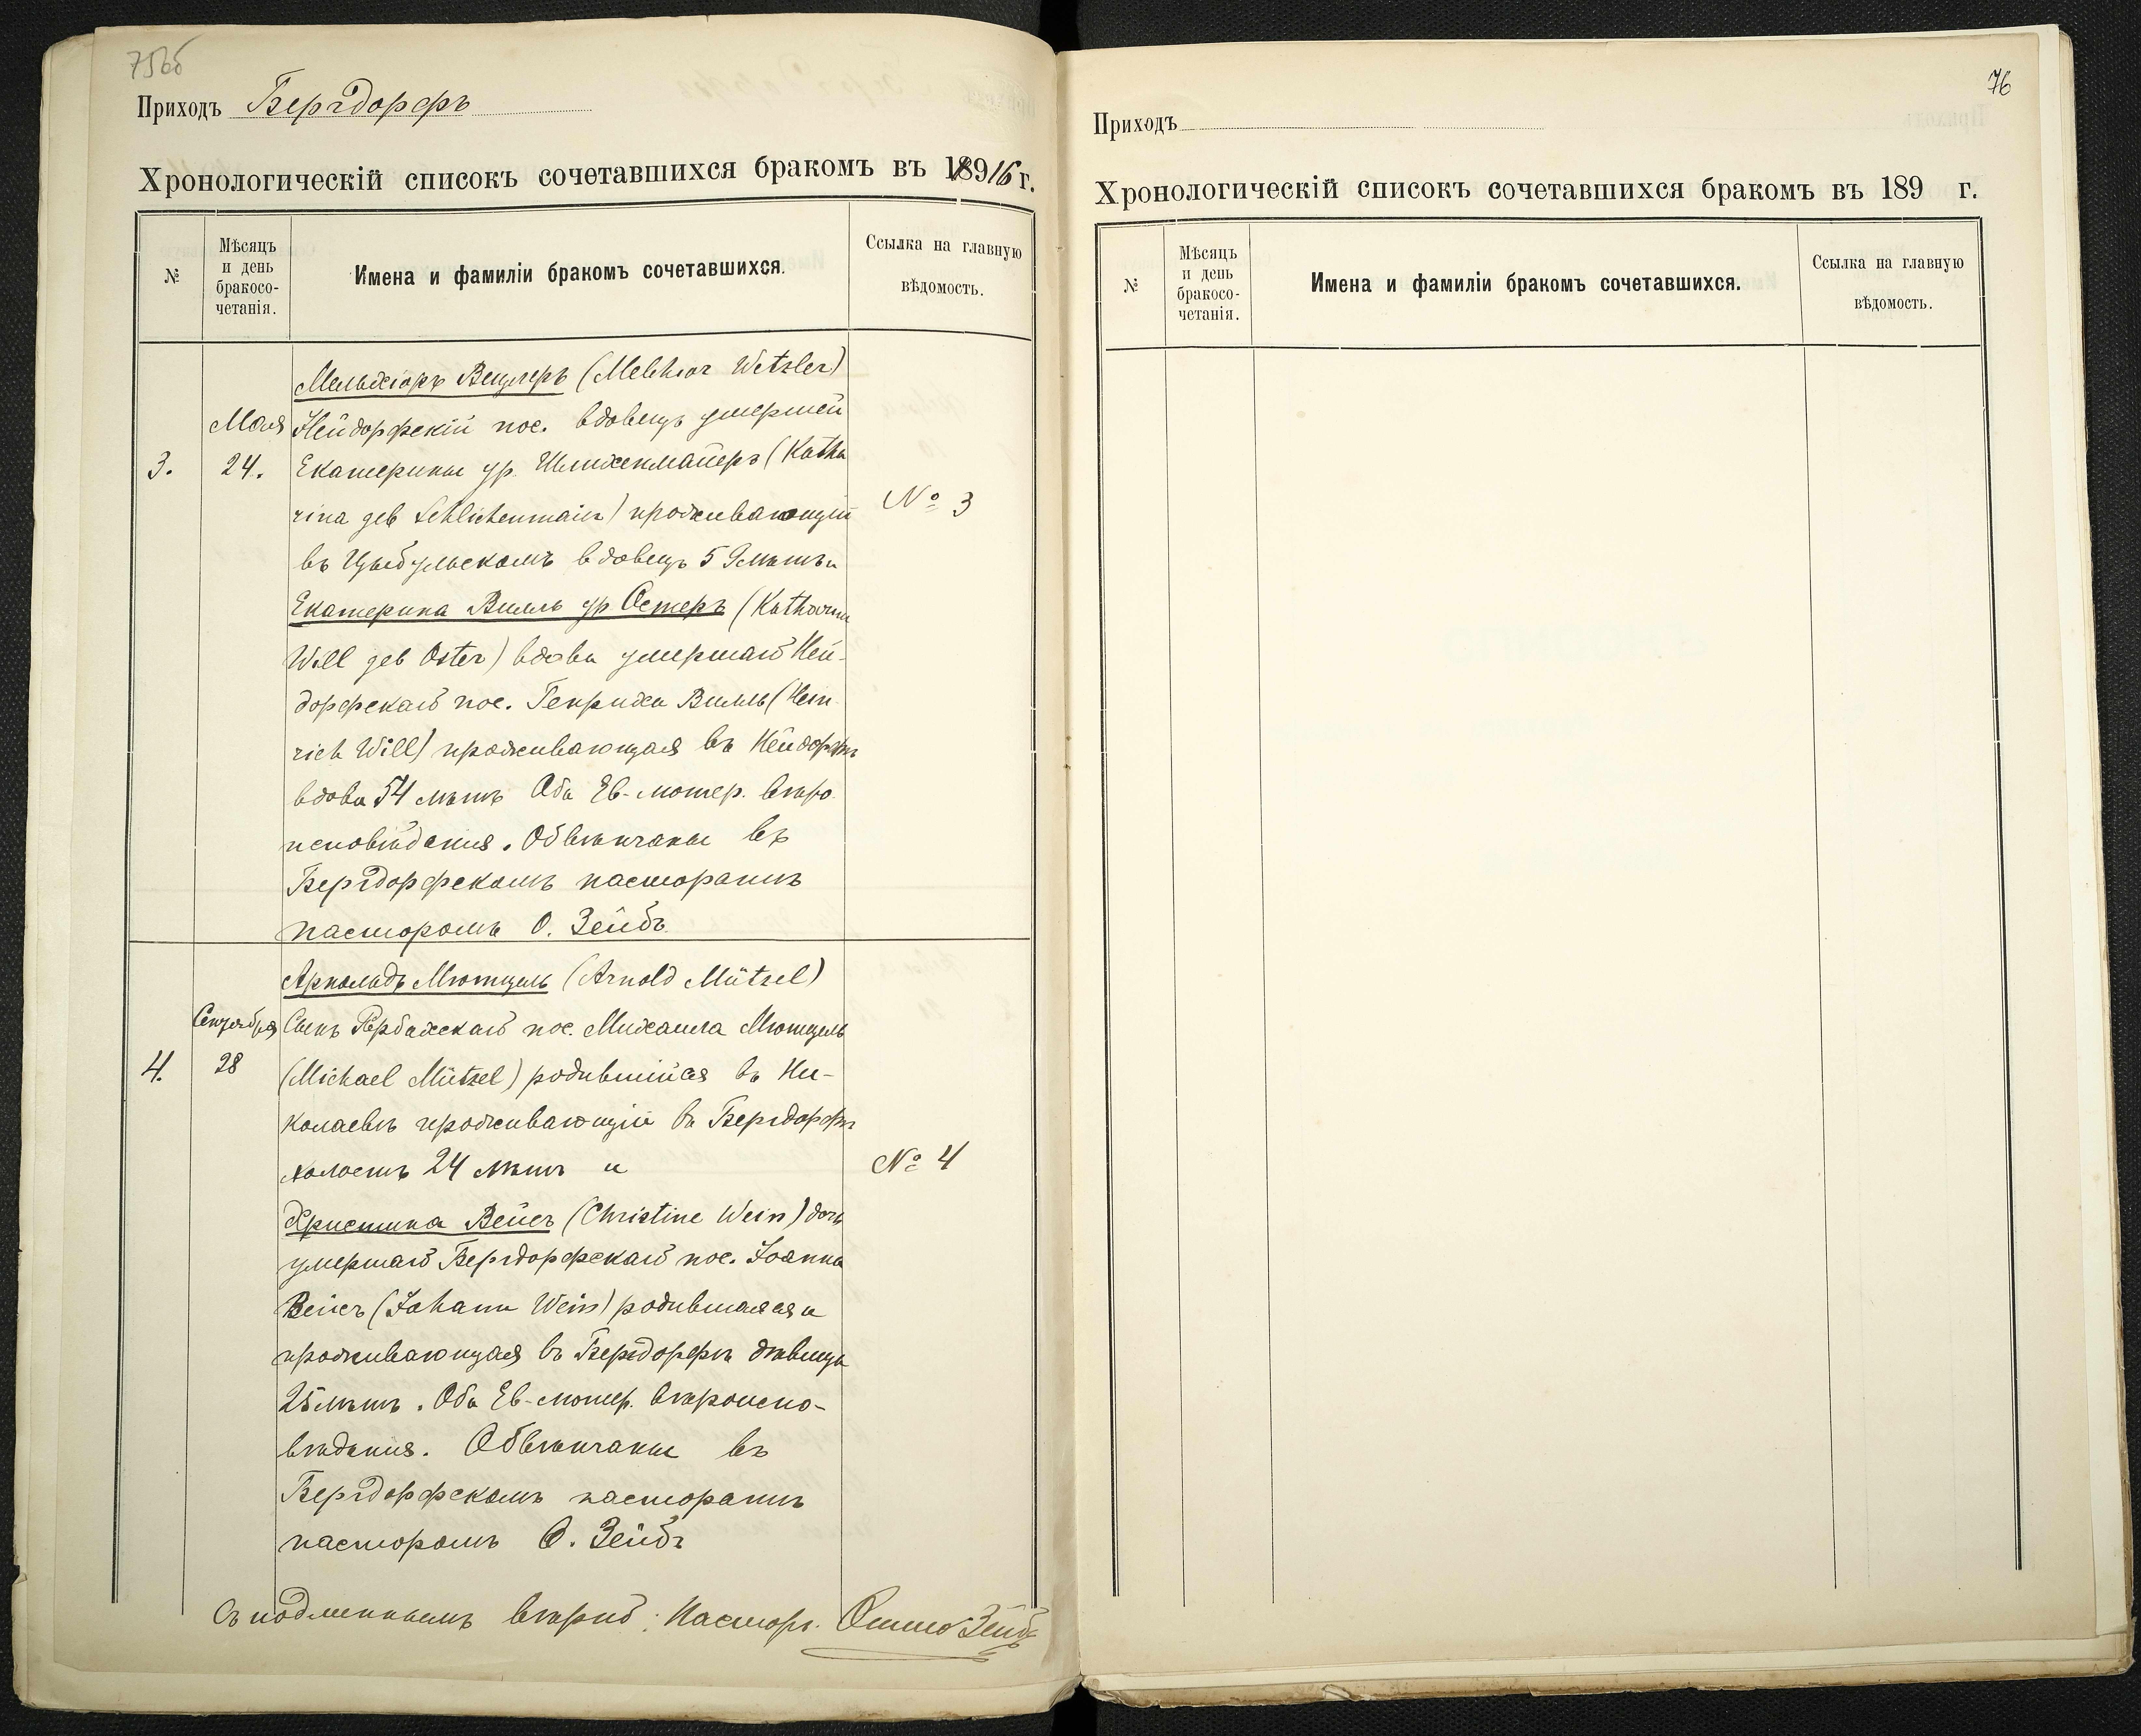 75об
Приходъ Бергдорфъ
Хронологическій списокъ сочетавшихся бракомъ въ 1916 г.
№
Мѣсяцъ
и день
бракосо-
четанія.
Имена и фамиліи бракомъ сочетавшихся.
Ссылка на главную
вѣдомость.
Мельхіоръ Вецлеръ (Melchior Wetzler)
Мая Нейдорфскій пос. вдовецъ умершей
3. 24. Екатерины ур. Шлихенмайеръ (Katha
rina geb Schlichenmaier) проживающій № 3
въ Цыбульскомъ вдовецъ 59 лѣтъ и
Екатерина Вилль ур Остеръ (Katharina
Will geb Oster) вдова умершаго Ней-
дорфскаго пос. Генриха Вилль (Hein
rich Will) проживающая въ Нейдорфѣ
вдова 54 лѣтъ Оба Ев-лютер. вѣро
исповѣданія. Обвѣнчаны въ
Бергдорфскомъ пасторатѣ
пасторомъ О. Зейбъ
Арнольдъ Мютцель (Arnold Mützel)
Сентября Сынъ пос. Михаила Мютцель
4. 28 (Michael Mützel) родившійся въ Ни-
колаевѣ проживающій въ Бергдорфѣ
холостъ 24 лѣтъ и № 4
Христина Вейсъ (Christine Weiss) дочь
умершаго Бергдорфскаго пос. Іоанна
Вейсъ (Johann Weiss) родившаяся и
проживающая въ Бергдорфѣ дѣвица
25 лѣтъ. Оба Ев-лютер. вѣроиспо-
вѣданія. Обвѣнчаны въ
Бергдорфскомъ пасторатѣ
пасторомъ О. Зейбъ
Съ подлиннымъ вѣрно: Пасторъ Отто Зейбъ
76
Приходъ
Хронологическій списокъ сочетавшихся бракомъ въ 189 г.
№
Мѣсяцъ
и день
бракосо-
четанія.
Имена и фамиліи бракомъ сочетавшихся.
Ссылка на главную
вѣдомость.